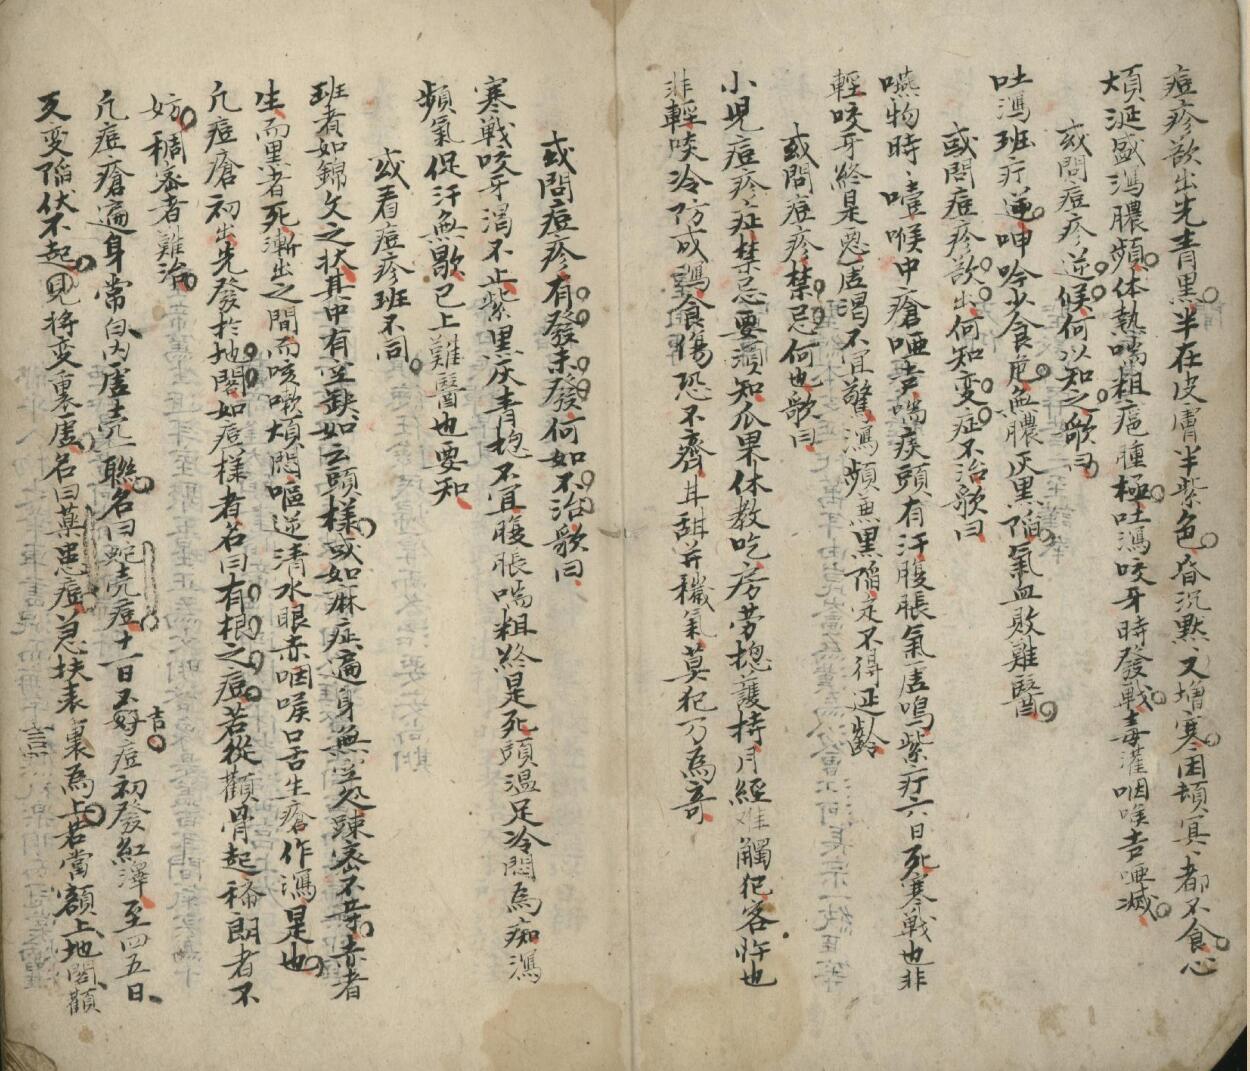 痘疹欲出先青黑半在皮膚半紫色昏沉默又增寒困頓冥都不食心
煩涎盛瀉膿頻体熱喘粗疤腫極吐瀉咬牙時發戰毒灌咽喉声啞滅
或問痘疹逆候何以知之歌曰
吐瀉班疔逆呻吟少食疤血膿灰黑陷氣血敗難醫
或問痘疹欲出何知变症不治歌曰
嚥物時嘻喉中瘡啞声喘痰頭有汗腹脹氣虛鳴紫疔六日死寒戰也非
輕咬牙終是惡虛渴不宜驚瀉頻兼黑陷定不得延齡
或問痘疹禁忌何也歌曰
小児痘疹症禁忌要須知瓜果休教吃房劳摠護持月經难觸犯客忤也
非輕啖冷防成瀉食傷恐不齊甘甜并穢氣莫犯万為奇
或問痘疹有發未發何如不治歌曰
寒戰咬牙渴不止紫黑灰青摠不宜腹脹喘粗終是死頭温足冷悶為痴瀉
頻氣促汗無歇已上難醫也要知
或看痘疹班不同
班者如錦文之状其中有空缺如云頭様或如麻症遍身無空処踈密不等赤者
生而黑者死漸出之間而咳嗽煩悶嘔逆清水眼赤咽喉口舌生瘡作瀉是也
凢痘瘡初出先發於地閣如痘様者名曰有根之痘若從顴骨起稀朗者不
妨稠密者難治
凢痘瘡遍身常白内虛壳聯名曰蛇壳痘十一日不好痘初發紅澤至四五日
吉
又变陥伏不起見將变裏虛名曰藥患痘急扶表裏為上若當額上地閣顴